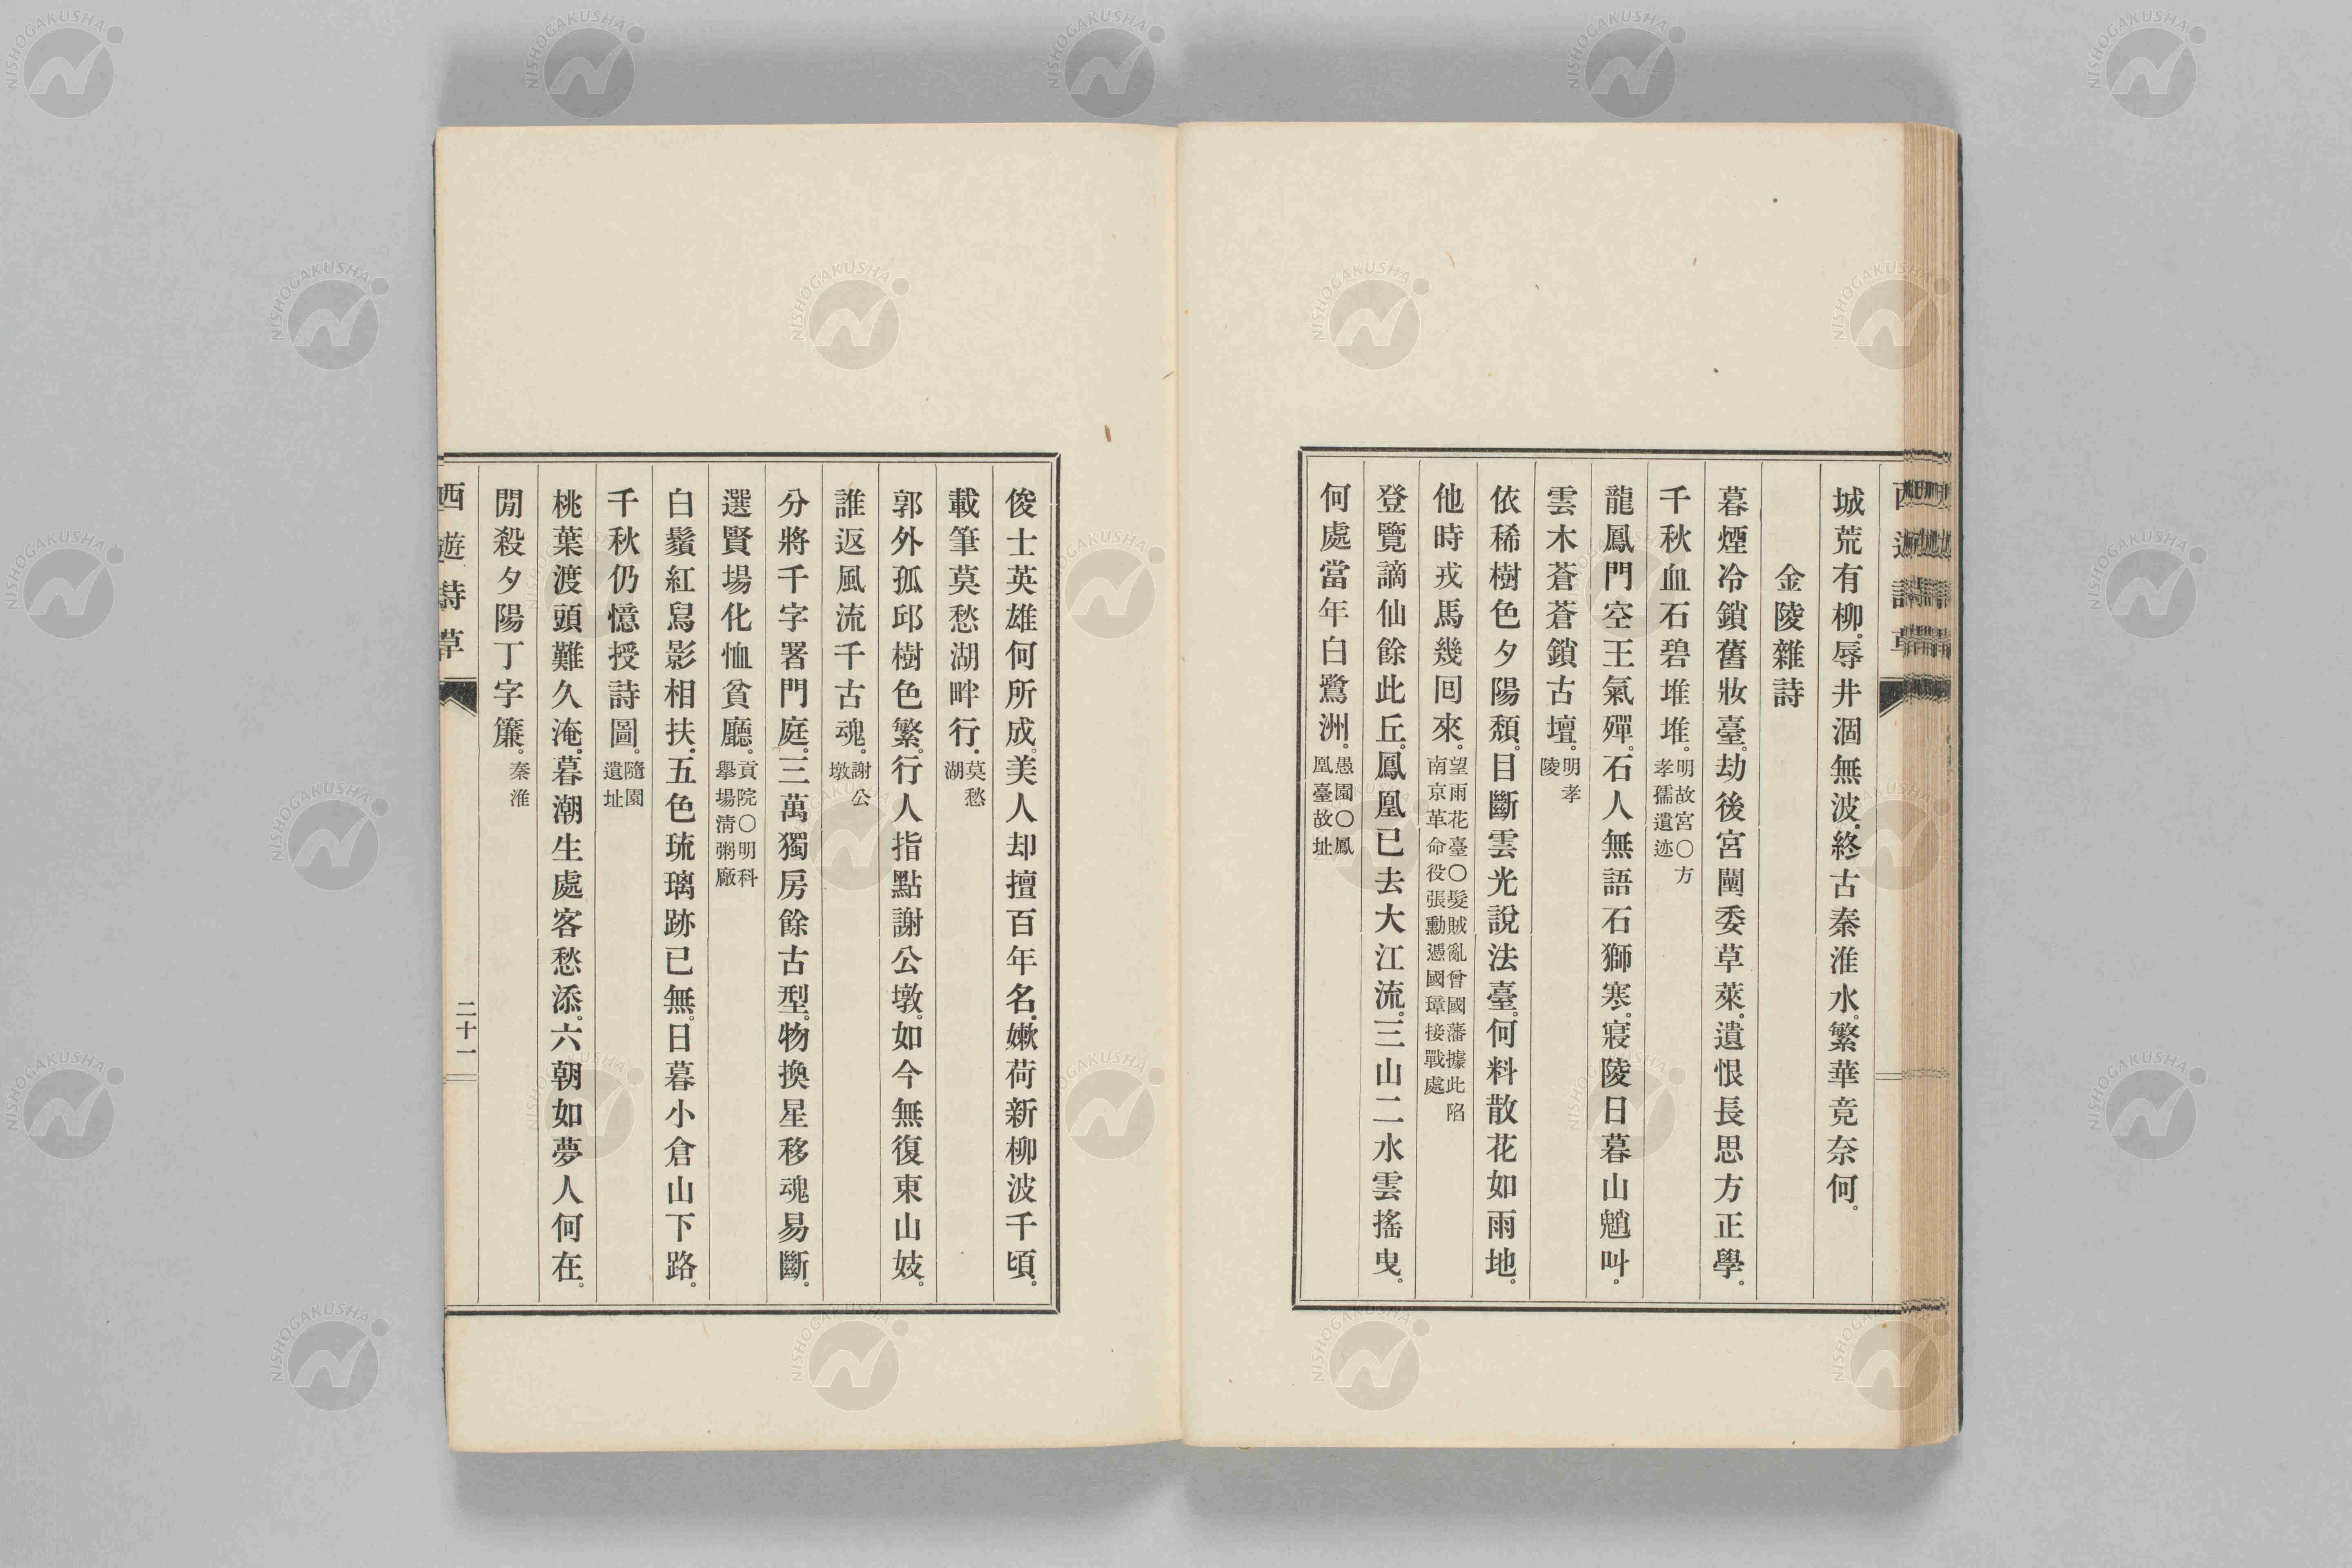 西遊詩草
城荒有柳。辱井涸無波。終古秦淮水。繁華竟奈何。
金陵雜詩
暮煙冷鎖舊妝臺。劫後宮闉委草萊。遺恨長思方正學。
千秋血石碧堆堆。明故宮〇方孝孺遺迹
龍鳳門空王氣殫。石人無語石獅寒。寢陵日暮山魈叫。
雲木蒼蒼鎖古壇。明孝陵
依稀樹色夕陽頹。目斷雲光說法臺。何料散花如雨地。
他時戎馬幾回來。望雨花臺〇髮賊亂曾國藩據此陷南京革命役張勳憑國璋接戰處
登覽謫仙餘此丘。鳳凰已去大江流。三山二水雲搖曳。
何處當年白鷺洲。愚園〇鳳凰臺故址
俊士英雄何所成。美人却擅百年名。嫩荷新柳波千頃。
載筆莫愁湖畔行。莫愁湖
郭外孤邱樹色繁。行人指點謝公墩。如今無復東山妓。
誰返風流千古魂。謝公墩
分將千字署門庭。三萬獨房餘古型。物換星移魂易斷。
選賢場化恤貧廳。貢院〇明科擧場淸粥廠
白鬚紅舃影相扶。五色琉璃跡已無。日暮小倉山下路。
千秋仍憶授詩圖。隨園遺址
桃葉渡頭難久淹。暮潮生處客愁添。六朝如夢人何在。
閒殺夕陽丁字簾。秦淮
西遊詩草
二十一
NISHOGAKUSHA